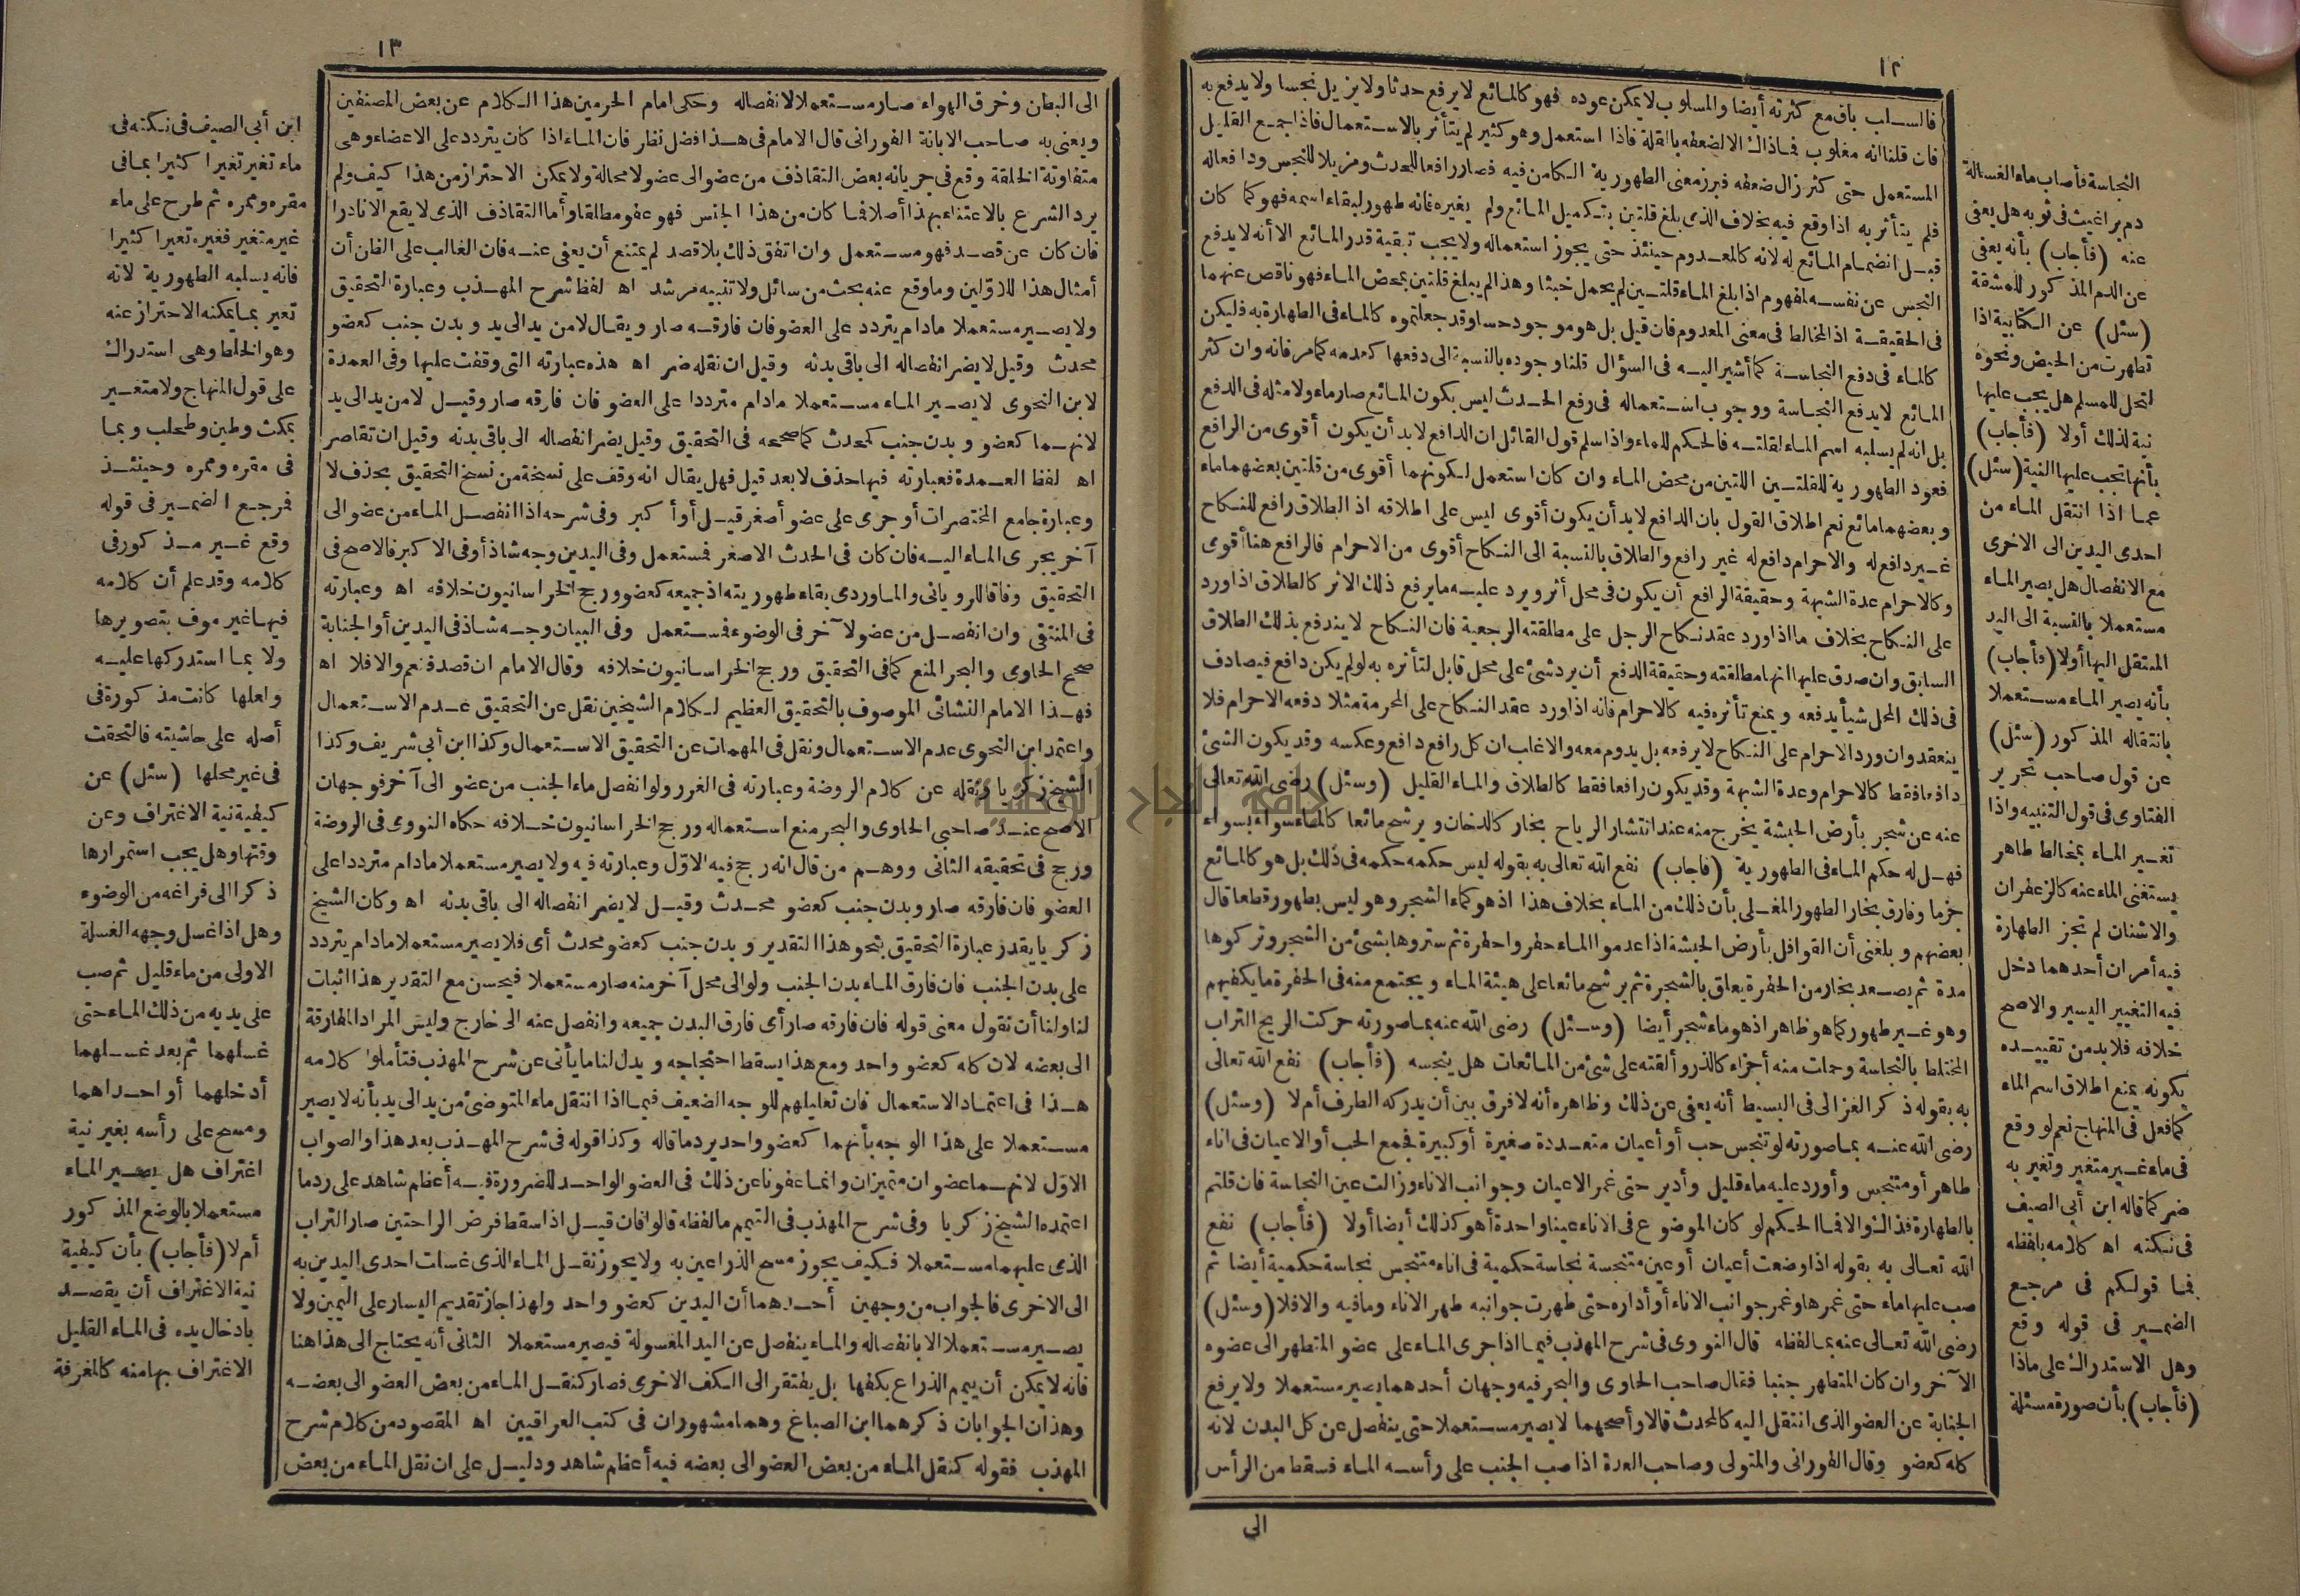 ١٢
فالسلب باق مع كثرته أيضا والمسلوب لا يمكن عوده فهو كالمائع لا يرفع حدثا ولا يزيل نجسا ولا يدفع به
فان قلنا انه مغلوب فما ذاك الا لضعفه بالقلة فاذا استعمل وهو كثير لم يتأثر بالاستعمال فاذا جمع القليل
المستعمل حتى كثر زال ضعفه فبرز معنى الطهورية الكامن فيه فصار رافعا للحدث ومزيلا للنجس ودافعا له
فلم يتأثر به اذا وقع فيه بخلاف الذى بلغ قلتين بتكميل المائع ولم يغيره فانه طهور لبقاء اسمه فهو كما كان
قبل انضمام المائع له لانه كالمعدوم حينئذ حتى يجوز استعماله ولا يجب تبقية قدر المائع الا أنه لا يدفع
النجس عن نفسه لمفهوم اذا بلغ الماء قلتين لم يحمل خبثا وهذا لم يبلغ قلتين بمحض الماء فهو ناقص عنهما
فى الحقيقة اذ المخالط فى معنى المعدوم فان قيل بل هو موجود حسا وقد جعلتموه كالماء فى الطهارة به فليكن
كالماء فى دفع النجاسة كما أشير اليه فى السؤال قلنا وجوده بالنسبة الى دفعها كعدمه كما مر فانه وان كثر
المائع لا يدفع النجاسة ووجوب استعماله فى رفع الحدث ليس بكون المائع صار ماء ولا مثله فى الدفع
بل انه لم يسلبه اسم الماء لقلته فالحكم للماء واذا سلم قول القائل ان الدافع لا بد أن يكون أقوى من الرافع
فعود الطهورية للقلتين اللتين من محض الماء وان كان استعمل لكونهما أقوى من قلتين بعضهما ماء
وبعضهما مائع نعم اطلاق القول بان الدافع لا بد أن يكون أقوى ليس على اطلاقه اذ الطلاق رافع للنكاح
غير دافع له والاحرام دافع له غير رافع والطلاق بالنسبة الى النكاح أقوى من الاحرام فالرافع هنا أقوى
وكالاحرام عدة الشبهة وحقيقة الرافع أن يكون فى محل أثر ويرد عليه ما يرفع ذلك الاثر كالطلاق اذا ورد
على النكاح بخلاف ما اذا ورد عقد نكاح الرجل على مطلقته الرجعية فان النكاح لا يندفع بذلك الطلاق
السابق وان صدق عليها انها مطلقته وحقيقة الدفع أن يرد شئ على محل قابل لتأثره به لو لم يكن دافع فيصادف
فى ذلك المحل شيأ يدفعه ويمنع تأثره فيه كالاحرام فانه اذا ورد عقد النكاح على المحرمة مثلا دفعه الاحرام فلا
ينعقد وان ورد الاحرام على النكاح لا يرفعه بل يدوم معه والاغلب ان كل رافع دافع وعكسه وقد يكون الشئ
دافعا فقط كالاحرام وعدة الشبهة وقد يكون رافعا فقط كالطلاق والماء القليل (وسئل) رضى الله تعالى
عنه عن شجر بأرض الحبشة يخرج منه عند انتشار الرياح بخار كالدخان ويرشح مائعا كالماء سواء بسواء
فهل له حكم الماء فى الطهورية (فأجاب) نفع الله تعالى به بقوله ليس حكمه حكمه فى ذلك بل هو كالمائع
جزما وفارق بخار الطهور المغلى بأن ذلك من الماء بخلاف هذا اذ هو كماء الشجر وهو ليس بطهور قطعا قال
بعضهم وبلغنى أن القوافل بأرض الحبشة اذا عدموا الماء حفروا حفرة ثم ستروها بشئ من الشجر وتركوها
مدة ثم يصعد بخار من الحفرة يعلق بالشجرة ثم يرشح مائعا على هيئة الماء ويجتمع منه فى الحفرة ما يكفيهم
وهو غير طهور كما هو ظاهر اذ هو ماء شجر أيضا (وسئل) رضى الله عنه بما صورته حركت الريح التراب
المختلط بالنجاسة وحملت منه أجزاء كالذر وألقته على شئ من المائعات هل ينجسه (فأجاب) نفع الله تعالى
به بقوله ذكر الغزالى فى البسيط أنه يعفى عن ذلك وظاهره أنه لا فرق بين أن يدركه الطرف أم لا (وسئل)
رضى الله عنه بما صورته لو تنجس حب أو أعيان متعددة صغيرة أو كبيرة فجمع الحب أو الاعيان فى اناء
طاهر أو متنجس وأورد عليه ماء قليل وأدير حتى غمر الاعيان وجوانب الاناء وزالت عين النجاسة فان قلتم
بالطهارة فذاك والا فما الحكم لو كان الموضوع فى الاناء عينا واحدة أهو كذلك أيضا أولا (فأجاب) نفع
الله تعالى به بقوله اذا وضعت أعيان أو عين متنجسة نجاسة حكمية فى اناء متنجس نجاسة حكمية أيضا ثم
صب عليها ماء حتى غمرها وغمر جوانب الاناء أو أداره حتى طهرت جوانبه طهر الاناء وما فيه والا فلا (وسئل)
رضى الله تعالى عنه بما لفظه قال النووى فى شرح المهذب فيما اذا جرى الماء على عضو المتطهر الى عضوه
الآخر وان كان المتطهر جنبا فقال صاحب الحاوى والبحر فيه وجهان أحدهما يصير مستعملا ولا يرفع
الجنابة عن العضو الذى انتقل اليه كالمحدث قالا وأصحهما لا يصير مستعملا حتى ينفصل عن كل البدن لانه
كله كعضو وقال الفورانى والمتولى وصاحب العدة اذا صب الجنب على رأسه الماء فسقط من الرأس
الى
النجاسة فأصاب ماء الغسالة
دم براغيث فى ثوبه هل يعفى
عنه (فأجاب) بأنه يعفى
عن الدم المذكور للمشقة
(سئل) عن الكتابية اذا
تطهرت من الحيض ونحوه
لتحل للمسلم هل يجب عليها
نية لذلك أولا (فأجاب)
بأنها تجب عليها النية (سئل)
عما اذا انتقل الماء من
احدى اليدين الى الاخرى
مع الانفصال هل يصير الماء
مستعملا بالنسبة الى اليد
المنتقل اليها أولا (فأجاب)
بأنه يصير الماء مستعملا
بانتقاله المذكور (سئل)
عن قول صاحب تحرير
الفتاوى فى قول التنبيه واذا
تغير الماء بمخالط طاهر
يستغنى الماء عنه كالزعفران
والاشنان لم تجز الطهارة
فيه أمران أحدهما دخل
فيه التغيير اليسير والاصح
خلافه فلا بد من تقييده
بكونه يمنع اطلاق اسم الماء
كما فعل فى المنهاج نعم لو وقع
فى ماء غير متغير وتغير به
ضر كما قاله ابن أبى الصيف
فى نكته اه كلامه بلفظه
فما قولكم فى مرجع
الضمير فى قوله وقع
وهل الاستدراك على ماذا
(فأجاب) بأن صورة مسئلة
١٣
الى البطن وخرق الهواء صار مستعملا لانفصاله وحكى امام الحرمين هذا الكلام عن بعض المصنفين
ويعنى به صاحب الابانة الفورانى قال الامام فى هذا فضل نظر فان الماء اذا كان يتردد على الاعضاء وهى
متفاوتة الخلقة وقع فى جريانه بعض التقاذف من عضو الى عضو لا محالة ولا يمكن الاحتراز من هذا كيف ولم
يرد الشرع بالاعتناء بهذا أصلا فما كان من هذا الجنس فهو عفو مطلقا وأما التقاذف الذى لا يقع الا نادرا
فان كان عن قصد فهو مستعمل وان اتفق ذلك بلا قصد لم يمتنع أن يعفى عنه فان الغالب على الظن أن
أمثال هذا للاولين وما وقع عنه بحث من سائل ولا تنبيه مرشد اه لفظ شرح المهذب وعبارة التحقيق
ولا يصير مستعملا ما دام يتردد على العضو فان فارقه صار ويقال لا من يد الى يد وبدن جنب كعضو
محدث وقيل لا يضر انفصاله الى باقى بدنه وقيل ان نقله ضر اه هذه عبارته التى وقفت عليها وفى العمدة
لابن النحوى لا يصير الماء مستعملا ما دام مترددا على العضو فان فارقه صار وقيل لا من يد الى يد
لانهما كعضو وبدن جنب كمحدث كما صححه فى التحقيق وقيل يضر انفصاله الى باقى بدنه وقيل ان تقاصر
اه لفظ العمدة فعبارته فيها حذف لا بعد قيل فهل يقال انه وقف على نسخة من نسخ التحقيق بحذف لا
وعبارة جامع المختصرات أو جرى على عضو أصغر قيل أو أكبر وفى شرحه اذا انفصل الماء من عضو الى
آخر يجرى الماء اليه فان كان فى الحدث الاصغر فمستعمل وفى اليدين وجه شاذ أو فى الاكبر فالاصح فى
التحقيق وفاقا للرويانى والماوردى بقاء طهوريته اذ جميعه كعضو ورجح الخراسانيون خلافه اه وعبارته
فى المنتقى وان انفصل من عضو لآخر فى الوضوء فمستعمل وفى البيان وجه شاذ فى اليدين أو الجنابة
صحح الحاوى والبحر المنع كما فى التحقيق ورجح الخراسانيون خلافه وقال الامام ان قصد فنعم والا فلا اه
فهذا الامام النشائى الموصوف بالتحقيق العظيم لكلام الشيخين نقل عن التحقيق عدم الاستعمال
واعتمد ابن النحوى عدم الاستعمال ونقل فى المهمات عن التحقيق الاستعمال وكذا ابن أبى شريف وكذا
الشيخ زكريا ونقله عن كلام الروضة وعبارته فى الغرر ولو انفصل ماء الجنب من عضو الى آخر فوجهان
الاصح عند صاحبى الحاوى والبحر منع استعماله ورجح الخراسانيون خلافه حكاه النووى فى الروضة
ورجح فى تحقيقه الثانى ووهم من قال انه رجح فيه الاول وعبارته فيه ولا يصير مستعملا ما دام مترددا على
العضو فان فارقه صار وبدن جنب كعضو محدث وقيل لا يضر انفصاله الى باقى بدنه اه وكان الشيخ
زكريا يقدر عبارة التحقيق بنحو هذا التقدير وبدن جنب كعضو محدث أى فلا يصير مستعملا ما دام يتردد
على بدن الجنب فان فارق الماء بدن الجنب ولو الى محل آخر منه صار مستعملا فيحسن مع التقدير هذا اثبات
لنا ولنا أن نقول معنى قوله فان فارقه صار أى فارق البدن جميعه وانفصل عنه الى خارج وليس المراد المفارقة
الى بعضه لان كله كعضو واحد ومع هذا يسقط احتجاجه ويدل لنا ما يأتى عن شرح المهذب فتأملوا كلامه
هذا فى اعتماد الاستعمال فان تعليلهم للوجه الضعيف فيما اذا انتقل ماء المتوضئ من يد الى يد بأنه لا يصير
مستعملا على هذا الوجه بأنهما كعضو واحد يرد ما قاله وكذا قوله فى شرح المهذب بعد هذا والصواب
الاول لانهما عضوان متميزان وانما عفونا عن ذلك فى العضو الواحد للضرورة فيه أعظم شاهد على رد ما
اعتمده الشيخ زكريا وفى شرح المهذب فى التيمم ما لفظه قالوا فان قيل اذا سقط فرض الراحتين صار التراب
الذى عليهما مستعملا فكيف يجوز مسح الذراعين به ولا يجوز نقل الماء الذى غسلت احدى اليدين به
الى الاخرى فالجواب من وجهين أحدهما أن اليدين كعضو واحد ولهذا جاز تقديم اليسار على اليمين ولا
يصير مستعملا الا بانفصاله والماء ينفصل عن اليد المغسولة فيصير مستعملا الثانى أنه يحتاج الى هذا هنا
فانه لا يمكن أن ييمم الذراع بكفها بل يفتقر الى الكف الاخرى فصار كنقل الماء من بعض العضو الى بعضه
وهذان الجوابان ذكرهما ابن الصباغ وهما مشهوران فى كتب العراقيين اه المقصود من كلام شرح
المهذب فقوله كنقل الماء من بعض العضو الى بعضه فيه أعظم شاهد ودليل على ان نقل الماء من بعض
ابن أبى الصيف فى نكته فى
ماء تغير تغيرا كثيرا بما فى
مقره وممره ثم طرح على ماء
غير متغير فغيره تغيرا كثيرا
فانه يسلبه الطهورية لانه
تغير بما يمكنه الاحتراز عنه
وهو الخلط وهى استدراك
على قول المنهاج ولا متغير
بمكث وطين وطحلب وبما
فى مقره وممره وحينئذ
فمرجع الضمير فى قوله
وقع غير مذكور فى
كلامه وقد علم أن كلامه
فيها غير موف بتصويرها
ولا بما استدركها عليه
ولعلها كانت مذكورة فى
أصله على حاشيته فالتحقت
فى غير محلها (سئل) عن
كيفية نية الاغتراف وعن
وقتها وهل يجب استمرارها
ذكرا الى فراغه من الوضوء
وهل اذا غسل وجهه الغسلة
الاولى من ماء قليل ثم صب
على يديه من ذلك الماء حتى
غسلهما ثم بعد غسلهما
أدخلهما أو احداهما
ومسح على رأسه بغير نية
اغتراف هل يصير الماء
مستعملا بالوضع المذكور
أم لا (فأجاب) بأن كيفية
نية الاغتراف أن يقصد
بادخال يده فى الماء القليل
الاغتراف بها منه كالمغرفة